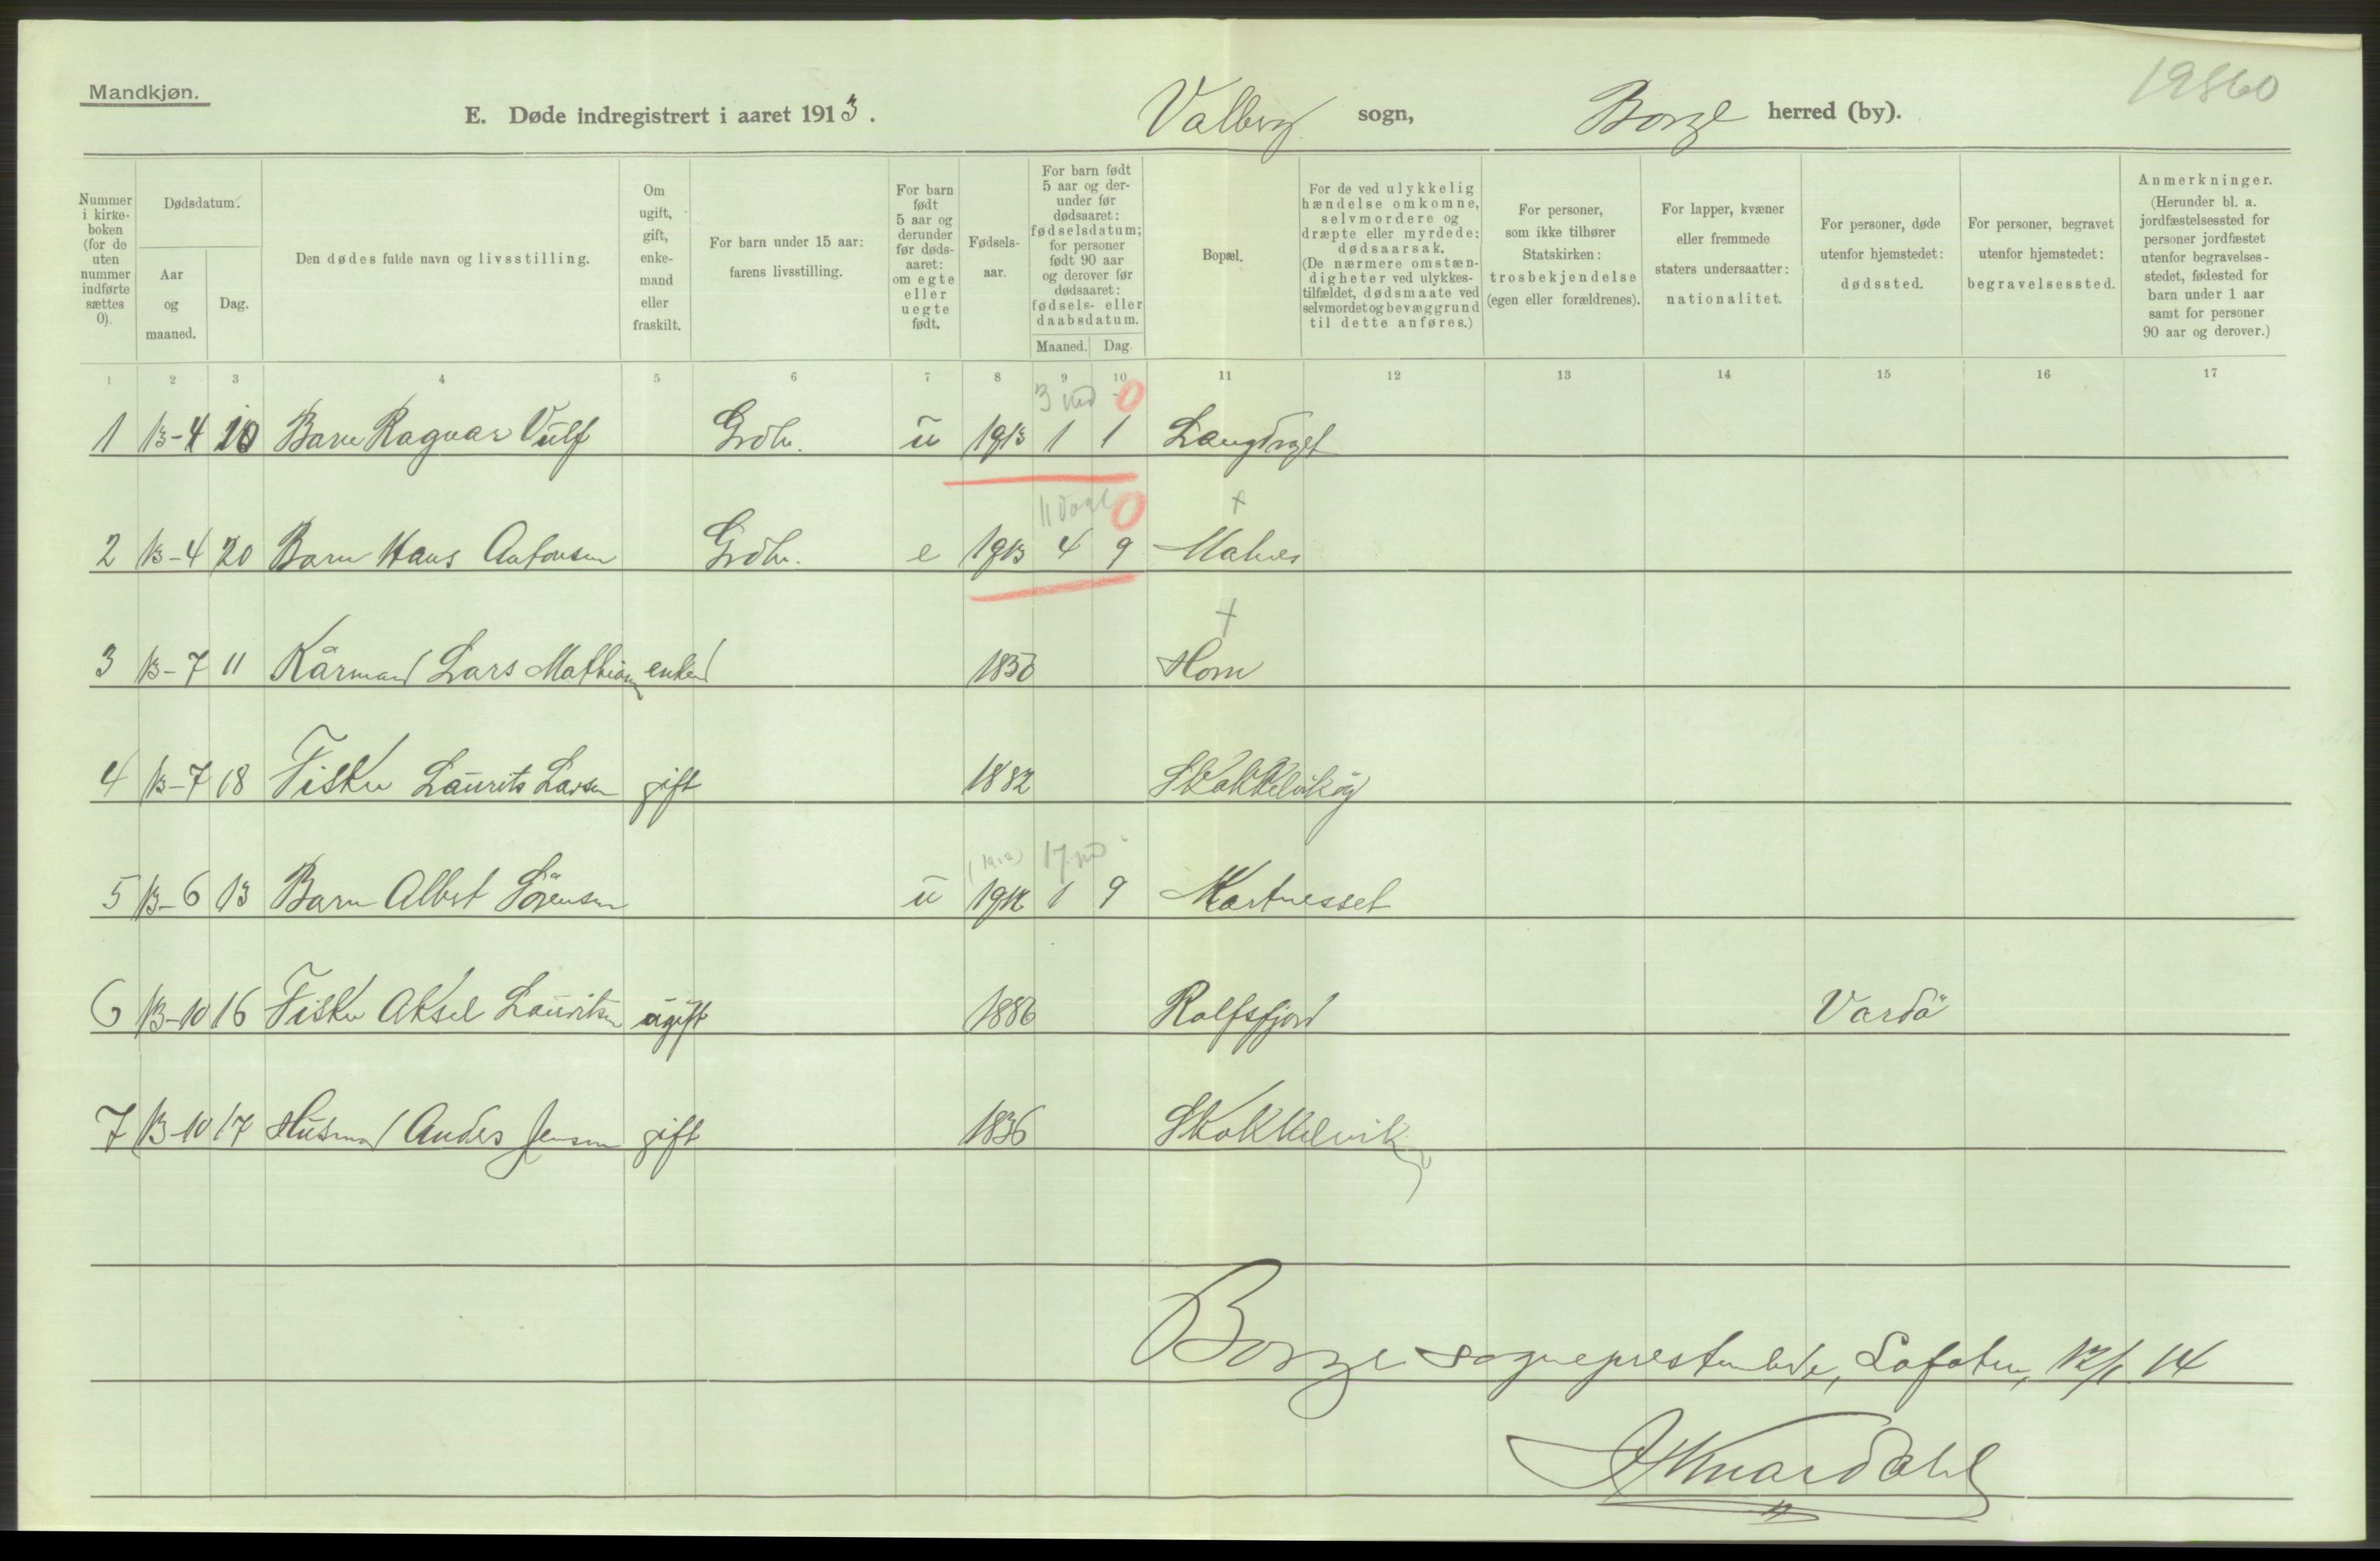 Mandkjøn.
19860
E. Døde indregistrert i aaret 1913. Valberg sogn, Borge herred (by).
Nummer i kirke- boken (for de uten nummer indførte sættes 0).
Dødsdatum.
Aar og maaned.
Dag.
Den dødes fulde navn og livsstilling.
Om ugift, gift, enke- mand eller fraskilt.
For barn under 15 aar: farens livsstilling.
For barn født 5 aar og derunder før døds- aaret: om egte eller uegte født.
Fødsels- aar.
For barn født 5 aar og der- under før dødsaaret: fødselsdatum; for personer født 90 aar og derover før dødsaaret: fødsels- eller daabsdatum.
Maaned. Dag.
Bopæl.
For de ved ulykkelig hændelse omkomne, selvmordere og dræpte eller myrdede: dødsaarsak. (De nærmere omstæn- digheter ved ulykkes- tilfældet, dødsmaate ved selvmordet og bevæggrund til dette anføres.)
For personer, som ikke tilhører Statskirken: trosbekjendelse (egen eller forældrenes).
For lapper, kvæner eller fremmede staters undersaatter: nationalitet.
For personer, døde utenfor hjemstedet: dødssted.
For personer, begravet utenfor hjemstedet: begravelsessted.
Anmerkninger. (Herunder bl. a. jordfæstelsessted for personer jordfæstet utenfor begravelses- stedet, fødested for barn under 1 aar samt for personer 90 aar og derover.)
1 2 3 4 5 6 7 8 9 10 11 12 13 14 15 16 17
3 md 0
1 13-4 10 Barn Ragnar Vulf Grdbr. u 1913 1 1 Langdraget
11 dage 0 +
2 13-4 20 Barn Hans Antonsen Grdbr. e 1913 4 9
+
3 13-7 11 Kårmand Lars Mathiasen enkem 1850 Horn
4 13-7 18 Fisker Laurits Larsen gift 1882
(1912) 17 md
5 13-6 13 Barn Albert Sörensen u 1912 1 9 Kartnesset
6 13-10 16 Fisker Aksel Lauritsen ugift 1886 Rolfsfjord Vardö
7 13-10 17 Husmand Anders Jensen gift 1836 Skokkelvik
Borge sogneprestembede, Lofoten, 12/1 14